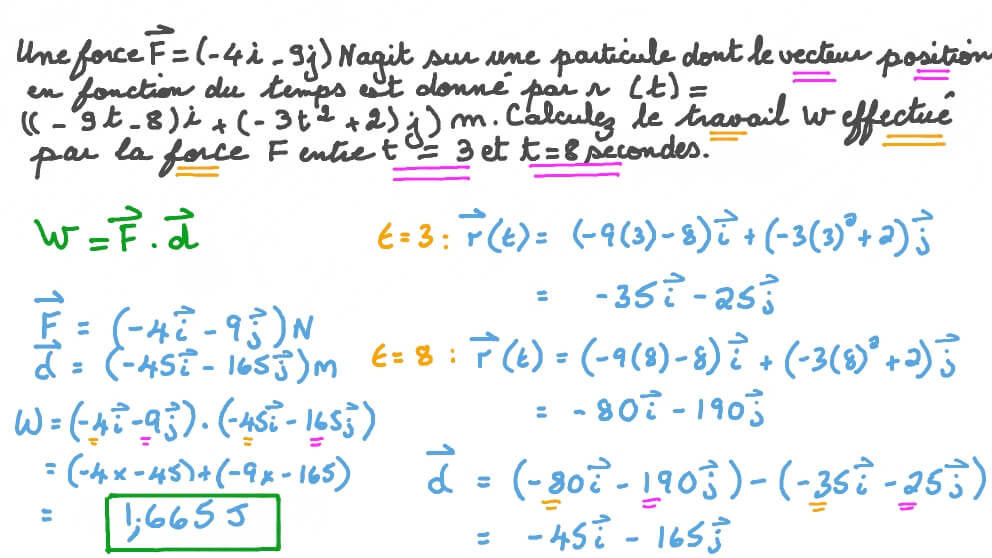 Une force F⃗ = (-4i - 9j) N agit sur une particule dont le vecteur position
en fonction du temps est donné par r (t) =
((-9t-8)i + (-3t² + 2)j) m. Calculez le travail W effectué
par la force F entre t = 3 et t = 8 secondes.
W = F⃗ . d⃗
F⃗ = (-4i⃗ - 9j⃗) N
d⃗ = (-45i⃗ - 165j⃗) m
W = (-4i⃗ - 9j⃗) . (-45i⃗ - 165j⃗)
= (-4 x -45) + (-9 x -165)
= 1,665 J
t = 3 : r⃗(t) = (-9(3) - 8)i⃗ + (-3(3)² + 2)j⃗
= -35i⃗ - 25j⃗
t = 8 : r⃗(t) = (-9(8) - 8)i⃗ + (-3(8)² + 2)j⃗
= -80i⃗ - 190j⃗
d⃗ = (-80i⃗ - 190j⃗) - (-35i⃗ - 25j⃗)
= -45i⃗ - 165j⃗